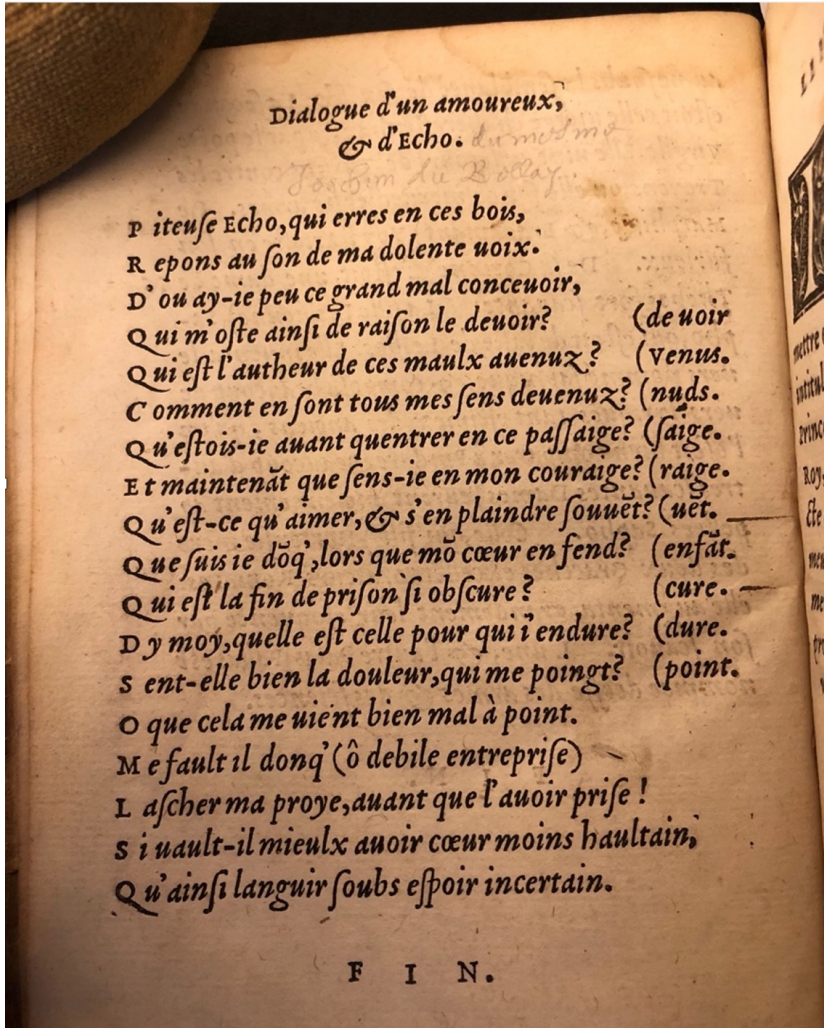 Dialogue d'un amoureux,
& d'Echo. du mesme
Joachim du Bellay.
P iteuſe Echo, qui erres en ces bois,
R epons au ſon de ma dolente uoix.
D' ou ay-ie peu ce grand mal conceuoir,
Q ui m'oſte ainſi de raiſon le deuoir? (de uoir
Q ui eſt l'autheur de ces maulx auenuz? (venus.
C omment en ſont tous mes ſens deuenuz? (nuds.
Q u'eſtois-ie auant quentrer en ce paſſaige? (ſaige.
E t maintenāt que ſens-ie en mon couraige? (raige.
Q u'eſt-ce qu'aimer, & s'en plaindre ſouuēt? (uēt.
Q ue ſuis ie dōq', lors que mō cœur en fend? (enfāt.
Q ui eſt la fin de priſon ſi obſcure? (cure.
D y moy, quelle eſt celle pour qui i'endure? (dure.
S ent-elle bien la douleur, qui me poingt? (point.
O que cela me uient bien mal à point.
M e fault il donq' (ô debile entrepriſe)
L aſcher ma proye, auant que l'auoir priſe !
S i uault-il mieulx auoir cœur moins haultain,
Q u'ainſi languir ſoubs eſpoir incertain.
F I N.
mettre
intitul
Princ
Roy,